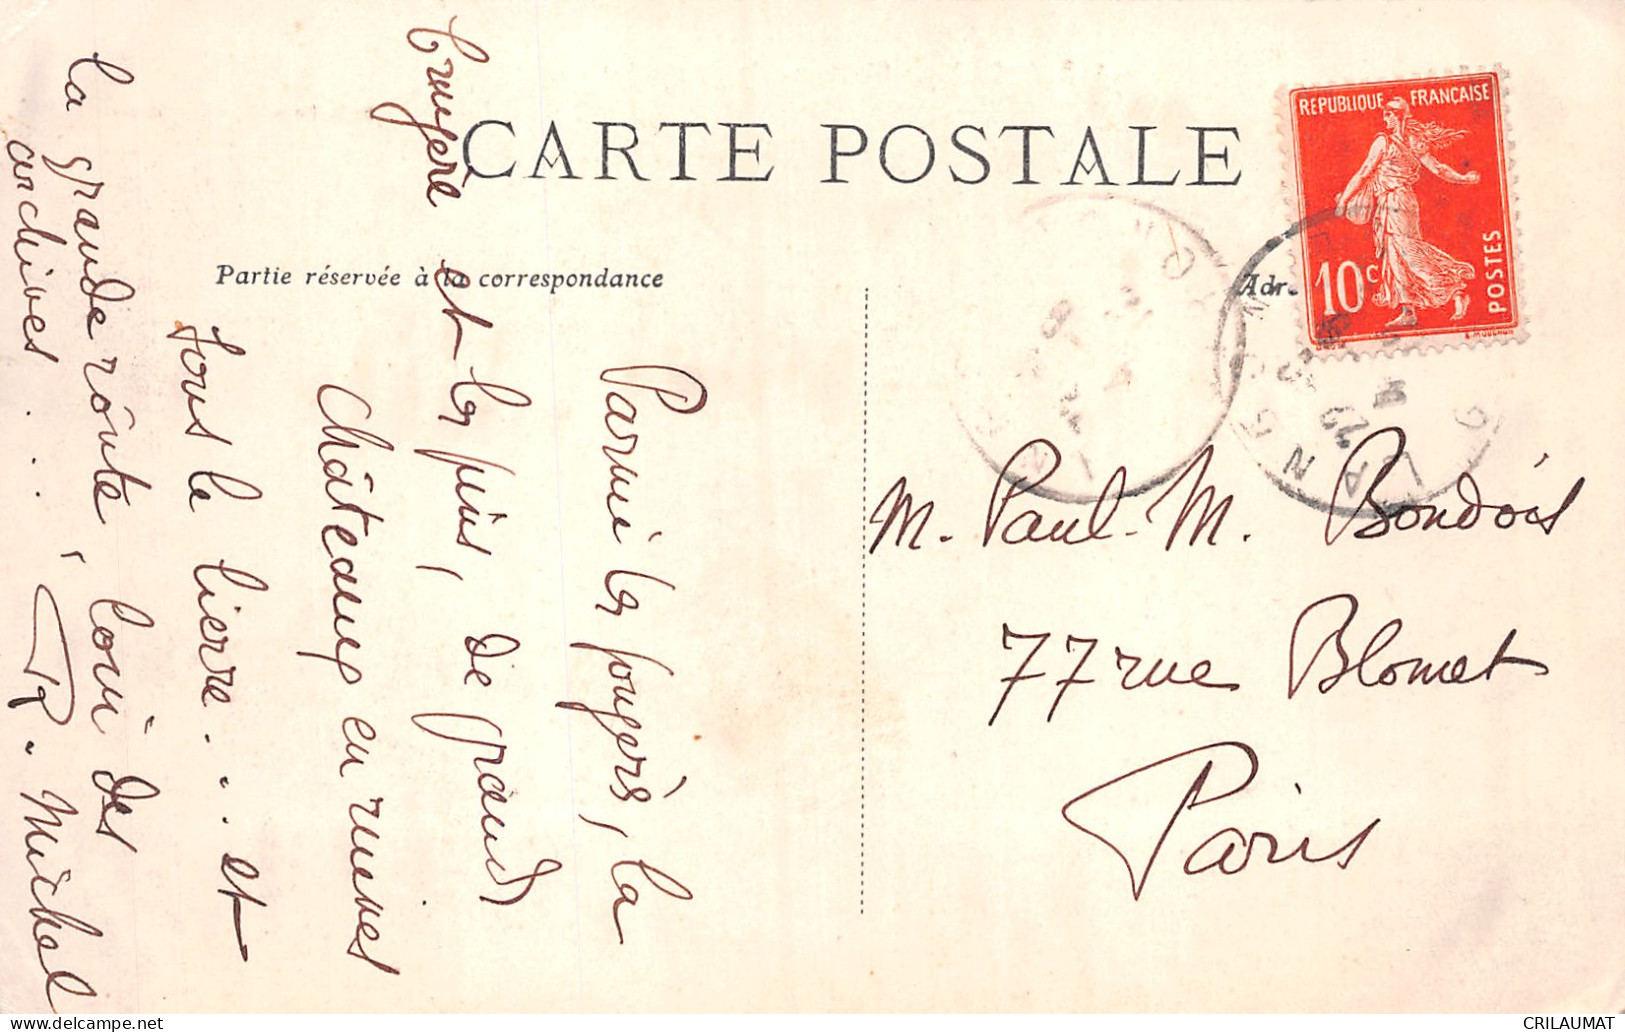 CARTE POSTALE
Partie réservée à la correspondance
Adr
REPUBLIQUE FRANÇAISE
10c
POSTES
E. MOUCHON
Parmi les fougères, la
bruyère et les pins, de grands
châteaux en ruines
sous le lierre... et
la grande route, loin des
archives...
R. Michel
M. Paul-M. Bondois
77 rue Blomet
Paris
CRILAUMAT